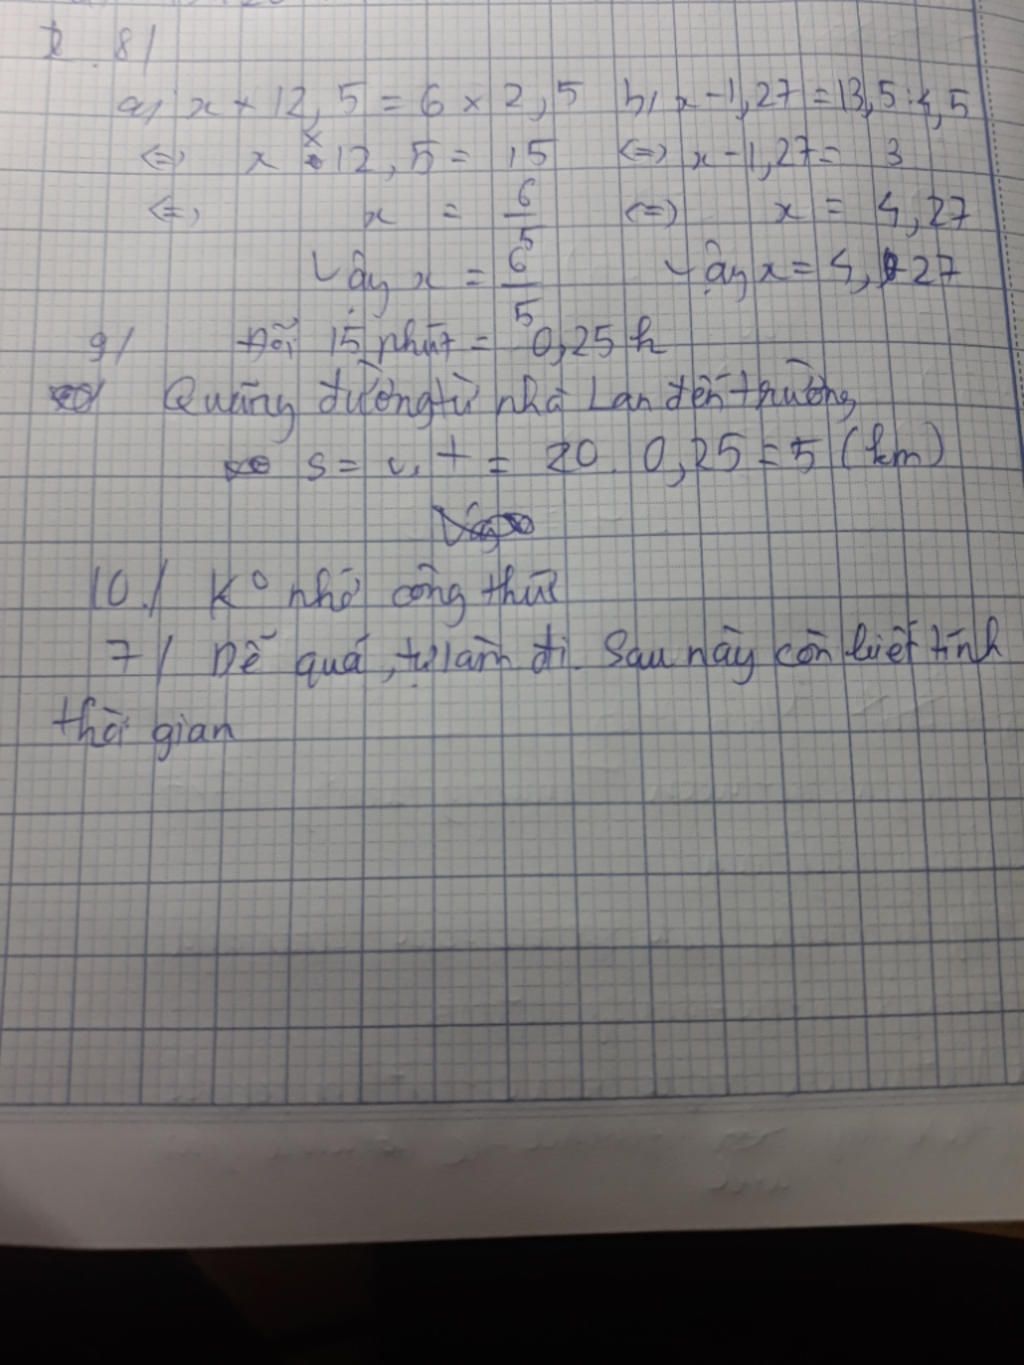 8/
a, x × 12,5 = 6 × 2,5 b, x - 1,27 = 13,5 : 4,5
<=> x × 12,5 = 15 <=> x - 1,27 = 3
<=> x = 6/5 <=> x = 4,27
Vậy x = 6/5 Vậy x = 4,27
9/ Đổi 15 phút = 0,25 h
Quãng đường từ nhà Lan đến trường
s = v.t = 20. 0,25 = 5 (km)
10./ Kº nhớ công thức
7/ Dễ quá, tự làm đi. Sau này còn biết tính
thời gian